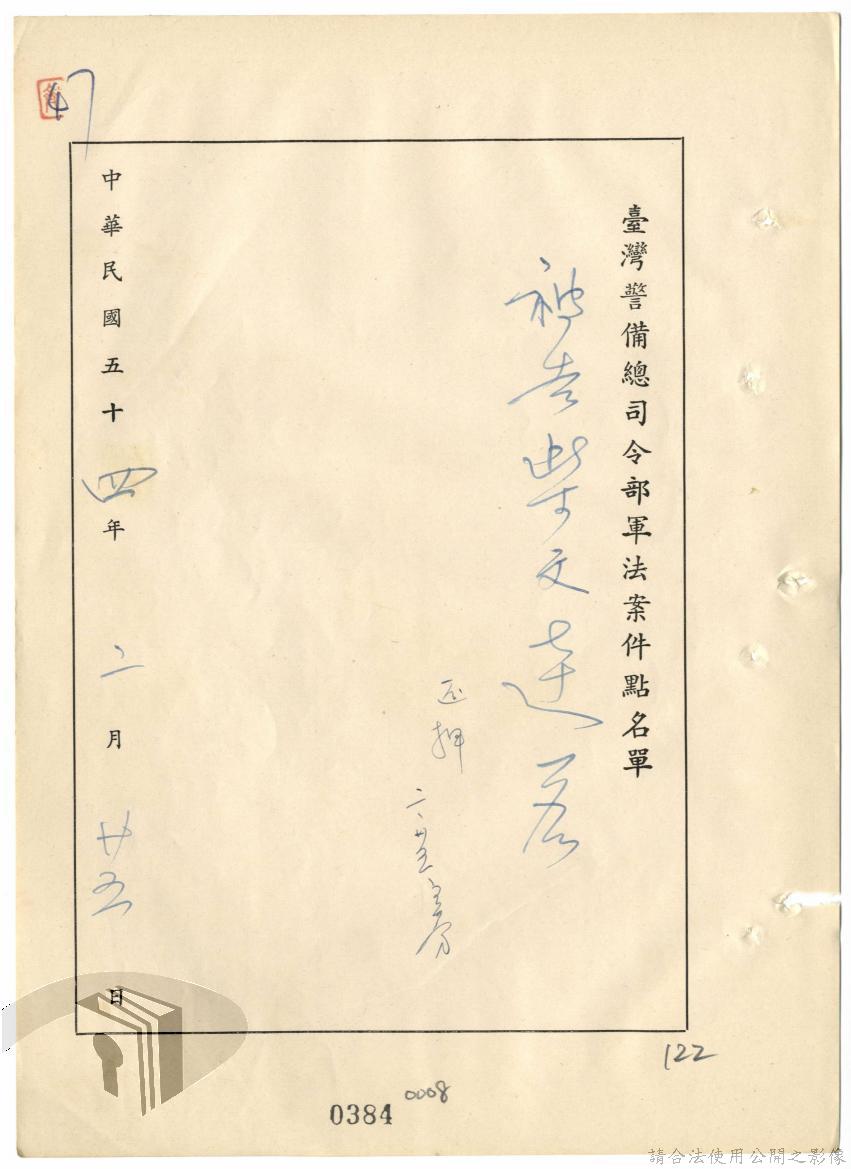 臺灣警備總司令部軍法案件點名單
被告柴文達君
還押
二、廿五
中華民國五十四年二月廿五日
47
122
0384
0008
請合法使用公開之影像